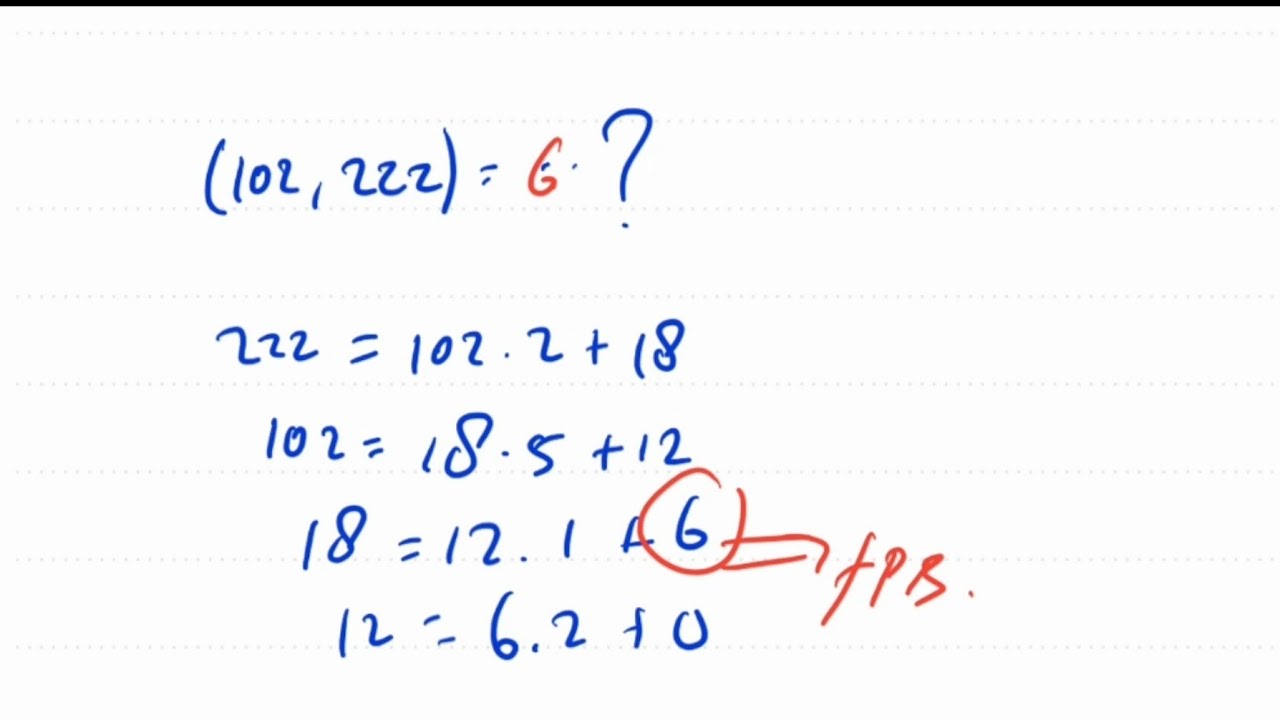 (102, 222) = 6 ?
222 = 102 . 2 + 18
102 = 18 . 5 + 12
18 = 12 . 1 + 6 fPB.
12 = 6 . 2 + 0